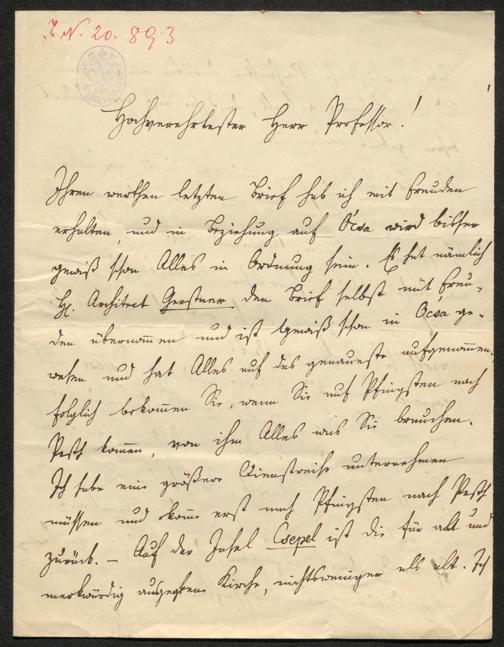 I. N. 20.893
Hochverehrtester Herr Professor!
Ihren werthen letzten Brief hab ich mit Freuden
erhalten, und in Beziehung auf Ócsa wird bisher
gewiß schon Alles in Ordnung sein. Es hat nämlich
H. Architect Gerstner den Brief selbst mit Freu-
den übernommen und ist gewiß schon in Ócsa ge-
wesen und hat Alles auf das genaueste aufgenommen,
folglich bekommen Sie, wenn Sie auf Pfingsten nach
Pesth kommen, von ihm Alles was Sie brauchen.
Ich habe eine größere Dienstreise unternehmen
müssen und komme erst nach Pfingsten nach Pesth
zurück. – Auf der Insel Csepel ist die für alt und
merkwürdig ausgegebene Kirche, nichtsweniger als alt. Ich